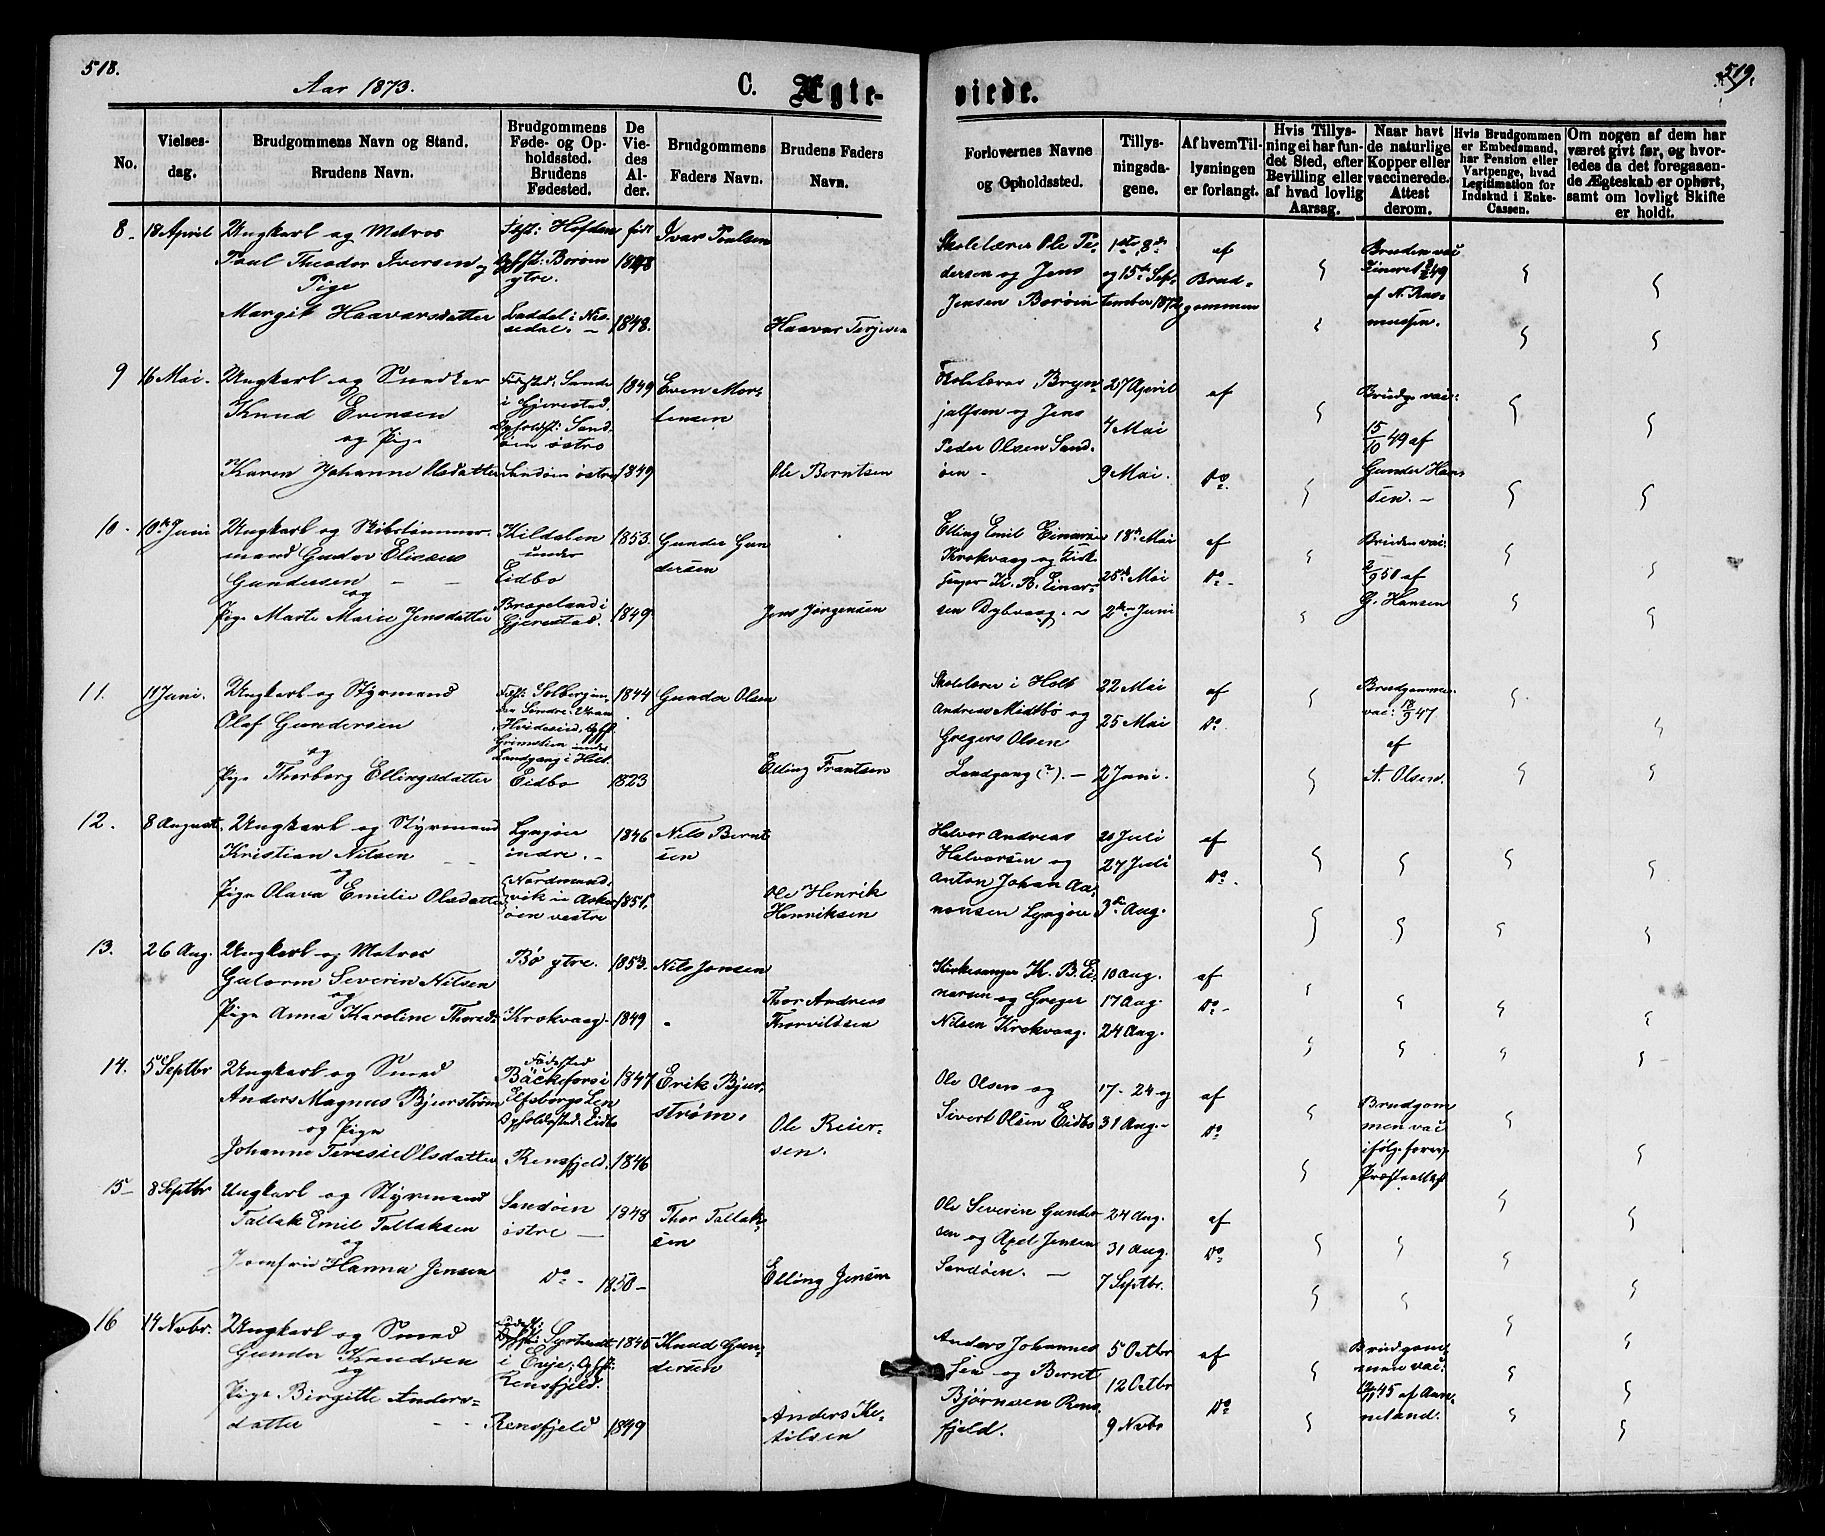 518.
Aar 1873.
C. Ægte-
viede.
519.
No.
Vielses-
dag.
Brudgommens Navn og Stand.
Brudens Navn.
Brudgommens
Føde- og Op-
holdssted.
Brudens
Fødested.
De
Vie-
des
Al-
der.
Brudgommens
Faders Navn.
Brudens Faders
Navn.
Forlovernes Navne
og Opholdssted.
Tillys-
ningsda-
gene.
Af hvem Til-
lysningen
er forlangt.
Hvis Tillys-
ning ei har fun-
det Sted, efter
Bevilling eller
af hvad lovlig
Aarsag.
Naar havt
de naturlige
Kopper eller
vaccinerede.
Attest
derom.
Hvis Brudgommen
er Embedsmand,
har Pension eller
Vartpenge, hvad
Legitimation for
Indskud i Enke-
Cassen.
Om nogen af dem har
været givt før, og hvor-
ledes da det foregaaen-
de Ægteskab er ophørt,
samt om lovligt Skifte
er holdt.
8. 18 April Ungkarl og Matros
Poul Theodor Iversen og
Pige
Margit Haavarsdatter
Opfst: Borøen
ytre.
1848
1848.
Ivar Poulsen
Haavar Terjesen
Skolelærer Ole Pe-
dersen og Jens
Jensen Borøen
1ste, 8de
og 15de Sep-
tember 1872
af
Brud-
gommen
Bruden vac-
cineret 49
af N. Ras-
mussen.
9 16 Mai. Ungkarl og Snedker
Knud Evensen
og Pige
Karen Johanne Olsdatter
Fødested: Sande
i Gjerestad,
Opholdst: Sand-
øen østre
Sandøen østre
1849
1849
Even Mor-
tensen
Ole Berntsen
Skolelærer Bryn-
julfsen og Jens
Peder Olsen Sand-
øen -
27 April
4 Mai
9 Mai.
af
Do.
Brudg. vac:
15/10 49 af
Gunder Han-
sen. -
10. 10de Juni Ungkarl og Skibstømmer-
mand Gustav Elisæus
Gundersen
og
Pige Marte Marie Jensdatter
Kildalen
under
Eidbo
Brageland i
Gjerestad.
1853.
1849.
Gunder Gun-
dersen
Jens Jørgensen
Elling Emil Einarsen
Krokvaag og Kirk-
sanger K. B. Einar-
sen Dybvaag. -
18de Mai
25de Mai
2den Juni
af
Do -
Bruden vac:
2/9 50 af
G. Hansen
11. 11 Juni. Ungkarl og Styrmand
Olaf Gundersen
og
Pige Thorborg Ellingsdatter
Landgang i Holt.
Eidbo
1844
1823
Gunder Olsen
Elling Frantsen
Skolelærer i Holt
Andreas Midtbø og
Gregers Olsen
Landgang (?). -
22 Mai
25 Mai
2 Juni.
af
Do
Brudgommen
vac: 18/9 47
af
A. Olsen.
12. 8 August. Ungkarl og Styrmand
Kristian Nilsen
og
Pige Olava Emilie Olsdatter
Lyngøen
indre. -
Nordmands-
vik i Asker-
øen vestre
1846
1851.
Nils Bernt-
sen
Ole Henrik
Henriksen
Halvor Andreas
Halvorsen og
Anton Johan Aa-
nonsen Lyngøen
20 Juli
27 Juli
3de Aug.
af
Do.
13. 26 Aug. Ungkarl og Matros
Gulorm Severin Nilsen
og
Pige Anna Karoline Thorsd.
Bø ytre.
Krokvaag.
1853.
1849
Nils Jensen
Thor Andreas
Thorvildsen
Kirkesanger K. B. Ei-
narsen og Greger
Nilsen Krokvaag.
10 Aug.
17 Aug.
24 Aug.
af
Do -
14. 5 Septbr Ungkarl og Smed
Anders Magnus Bjurstrøm
og Pige
Johanne Teresie Olsdatter
Fødested
Bäckefors i
Elfsborgs Len
Opholdssted: Eidbo
Rensfjeld.
1847
1846
Erik Bjur-
strøm.
Ole Reier-
sen.
Ole Olsen og
Sivert Olsen Eidbo
17- 24 og
31 Aug. -
af
Do
Brudgom-
men vac:
ifølge
Præsteattest
15 - 8 Septbr Ungkarl og Styrmand
Tallak Emil Tallaksen
og
Jomfru Hanna Jensen
Sandøen
østre -
Do -
1848
1850 -
Thor Tallak-
sen
Elling Jensen
Ole Severin Gunder-
sen og Axel Jensen
Sandøen. -
24 Aug.
31 Aug.
7 Septbr.
af
Do
16 14 Novbr. Ungkarl og Smed
Gunder Knudsen
og
Pige Birgitte Anders-
datter
Rensfjeld.
Rensfjeld
1845
1849
Knud Gun-
dersen
Anders Ke-
tilsen
Anders Johannes-
sen og Bernt
Bjørnsen Rens-
fjeld.
5 Octbr
12 Octbr
9 Novbr
af
Do
Brudgom-
men vac.
45 af Aan-
neland.